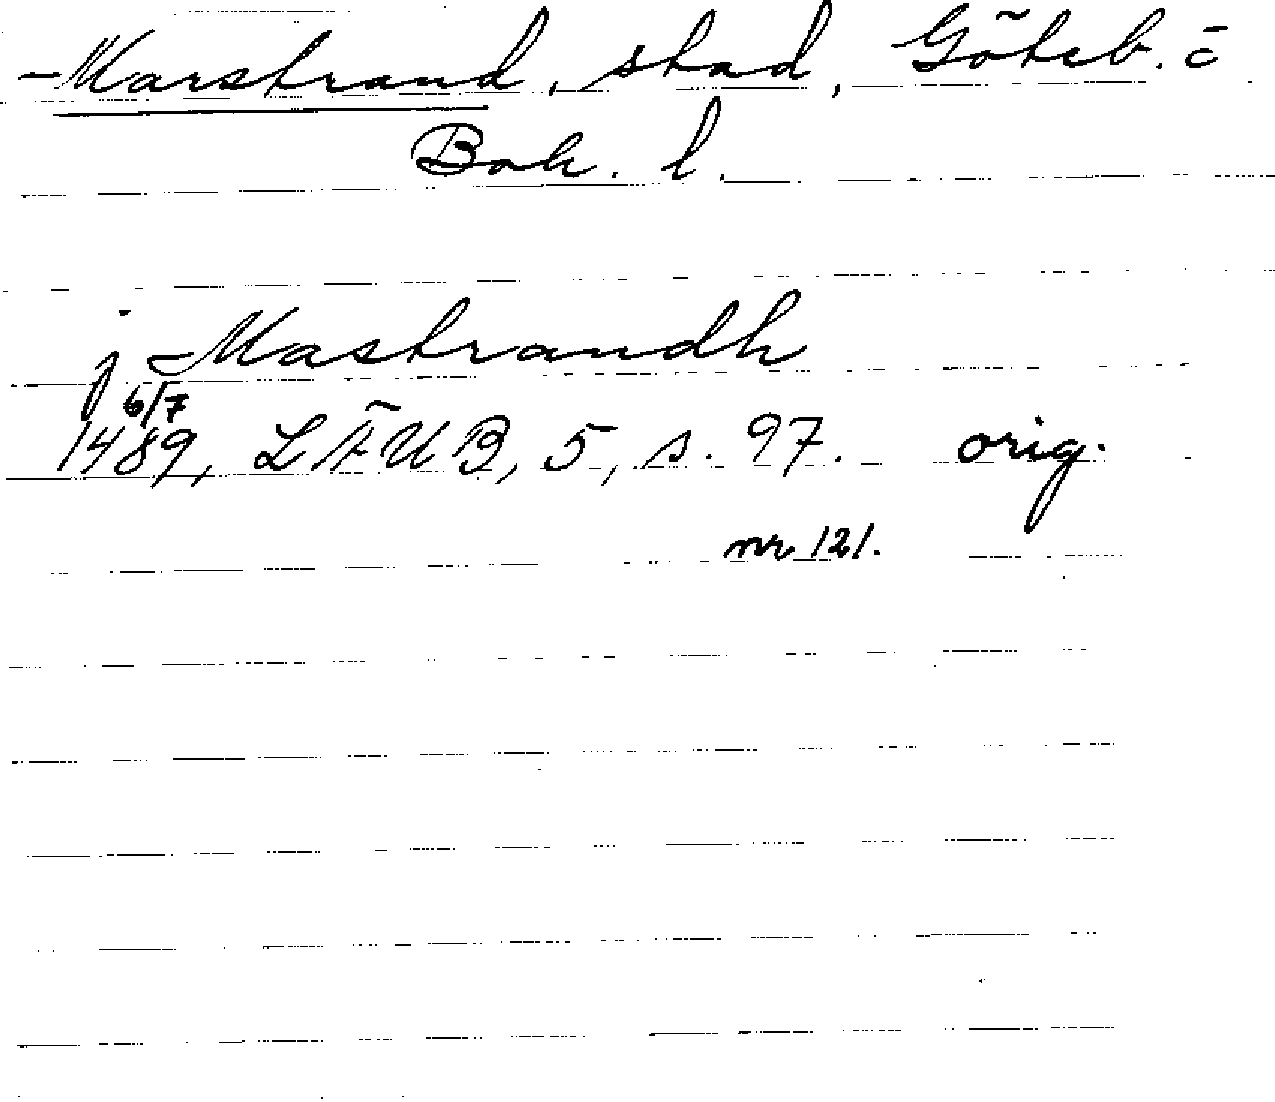 -Marstrand, stad, Göteb. o
Boh. l.
j -Mastrandh
6/7
1489, LÄUB, 5, s. 97. orig.
nr 121.